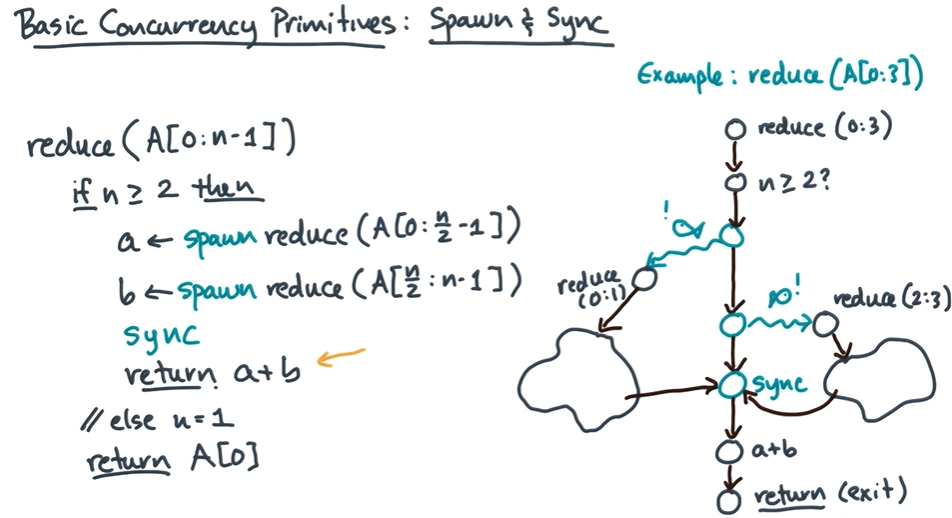 Basic Concurrency Primitives: Spawn & Sync
reduce (A[0:n-1])
if n ≥ 2 then
a ← spawn reduce (A[0:n/2-1])
b ← spawn reduce (A[n/2:n-1])
sync
return a+b
// else n=1
return A[0]
Example: reduce (A[0:3])
reduce (0:3)
n ≥ 2?
!
reduce
(0:1)
!
reduce (2:3)
sync
a+b
return (exit)